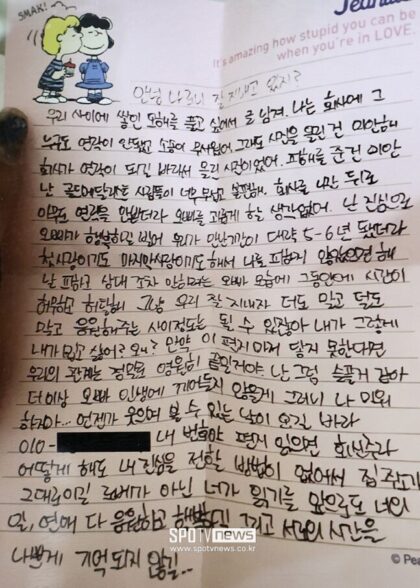 SMAK!
Peanuts
It's amazing how stupid you can be
when you're in LOVE.
안녕 나 잘 지내고 있지?
우리 사이에 쌓인 오해를 풀고 싶어서 글 남겨. 나는 회사에 그
누구도 연락이 안됐었고 소송이 무서웠어. 그래도 사진을 올린 건 미안해
회사가 연락이 되길 바라서 올린 사진이었어. 피해를 준건 미안
난 골드메달리스트 사람들이 너무 무섭고 불편해. 회사를 나간 뒤로
아무도 연락을 안봤더라 오빠를 괴롭게 할 생각없어. 난 진심으로
오빠가 행복하길 빌어 우리가 만난기간이 대략 5-6년 됐더라
첫사랑이기도 마지막사랑이기도해서 나를 피하지 않았으면 해
난 피하고 상대 조차 안하려는 오빠 모습에 그동안에 시간이
허무하고 허탈해 그냥 우리 잘 지내자 더도 말고 덜도
말고 응원해주는 사이정도는 될 수 있잖아 내가 그렇게
내가 밉고 싫어? 왜? 만약 이 편지마저 닿지 못한다면
우리의 관계는 정말로 영원히 끝일거야 난 그럼 슬플거 같아
더이상 오빠 인생에 끼어들지 않을게 그러니 나 미워
하지마... 언젠가 웃으며 볼 수 있는 날이 오길 바라
010- 내 번호야 편지 읽으면 회신주라
어떻게 해도 내 진심을 전할 방법이 없어서 집 주소가
그대로이길 로베가 아닌 너가 읽기를 앞으로도 너의
일, 연애 다 응원하고 행복하길 그리고 서로의 시간을
나쁘게 기억되지 않길...
SPOTVnews
www.spotvnews.co.kr
© Pea